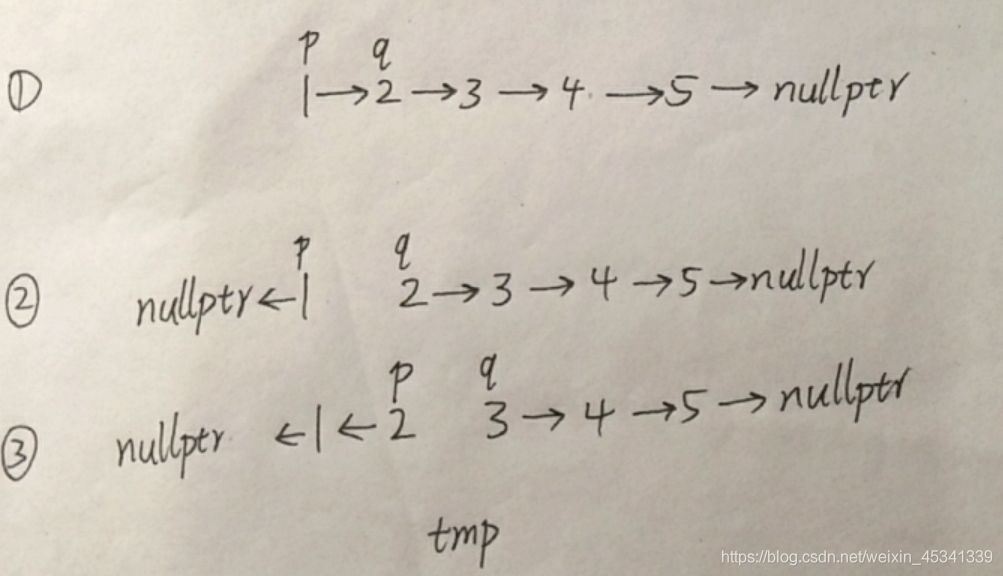 p q
① 1→2→3→4→5→nullptr
p q
② nullptr←1 2→3→4→5→nullptr
p q
③ nullptr ←1←2 3→4→5→nullptr
tmp
https://blog.csdn.net/weixin_45341339